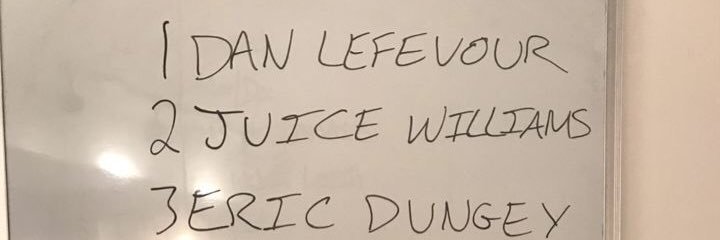 1 DAN LEFEVOUR
2 JUICE WILLIAMS
3 ERIC DUNGEY